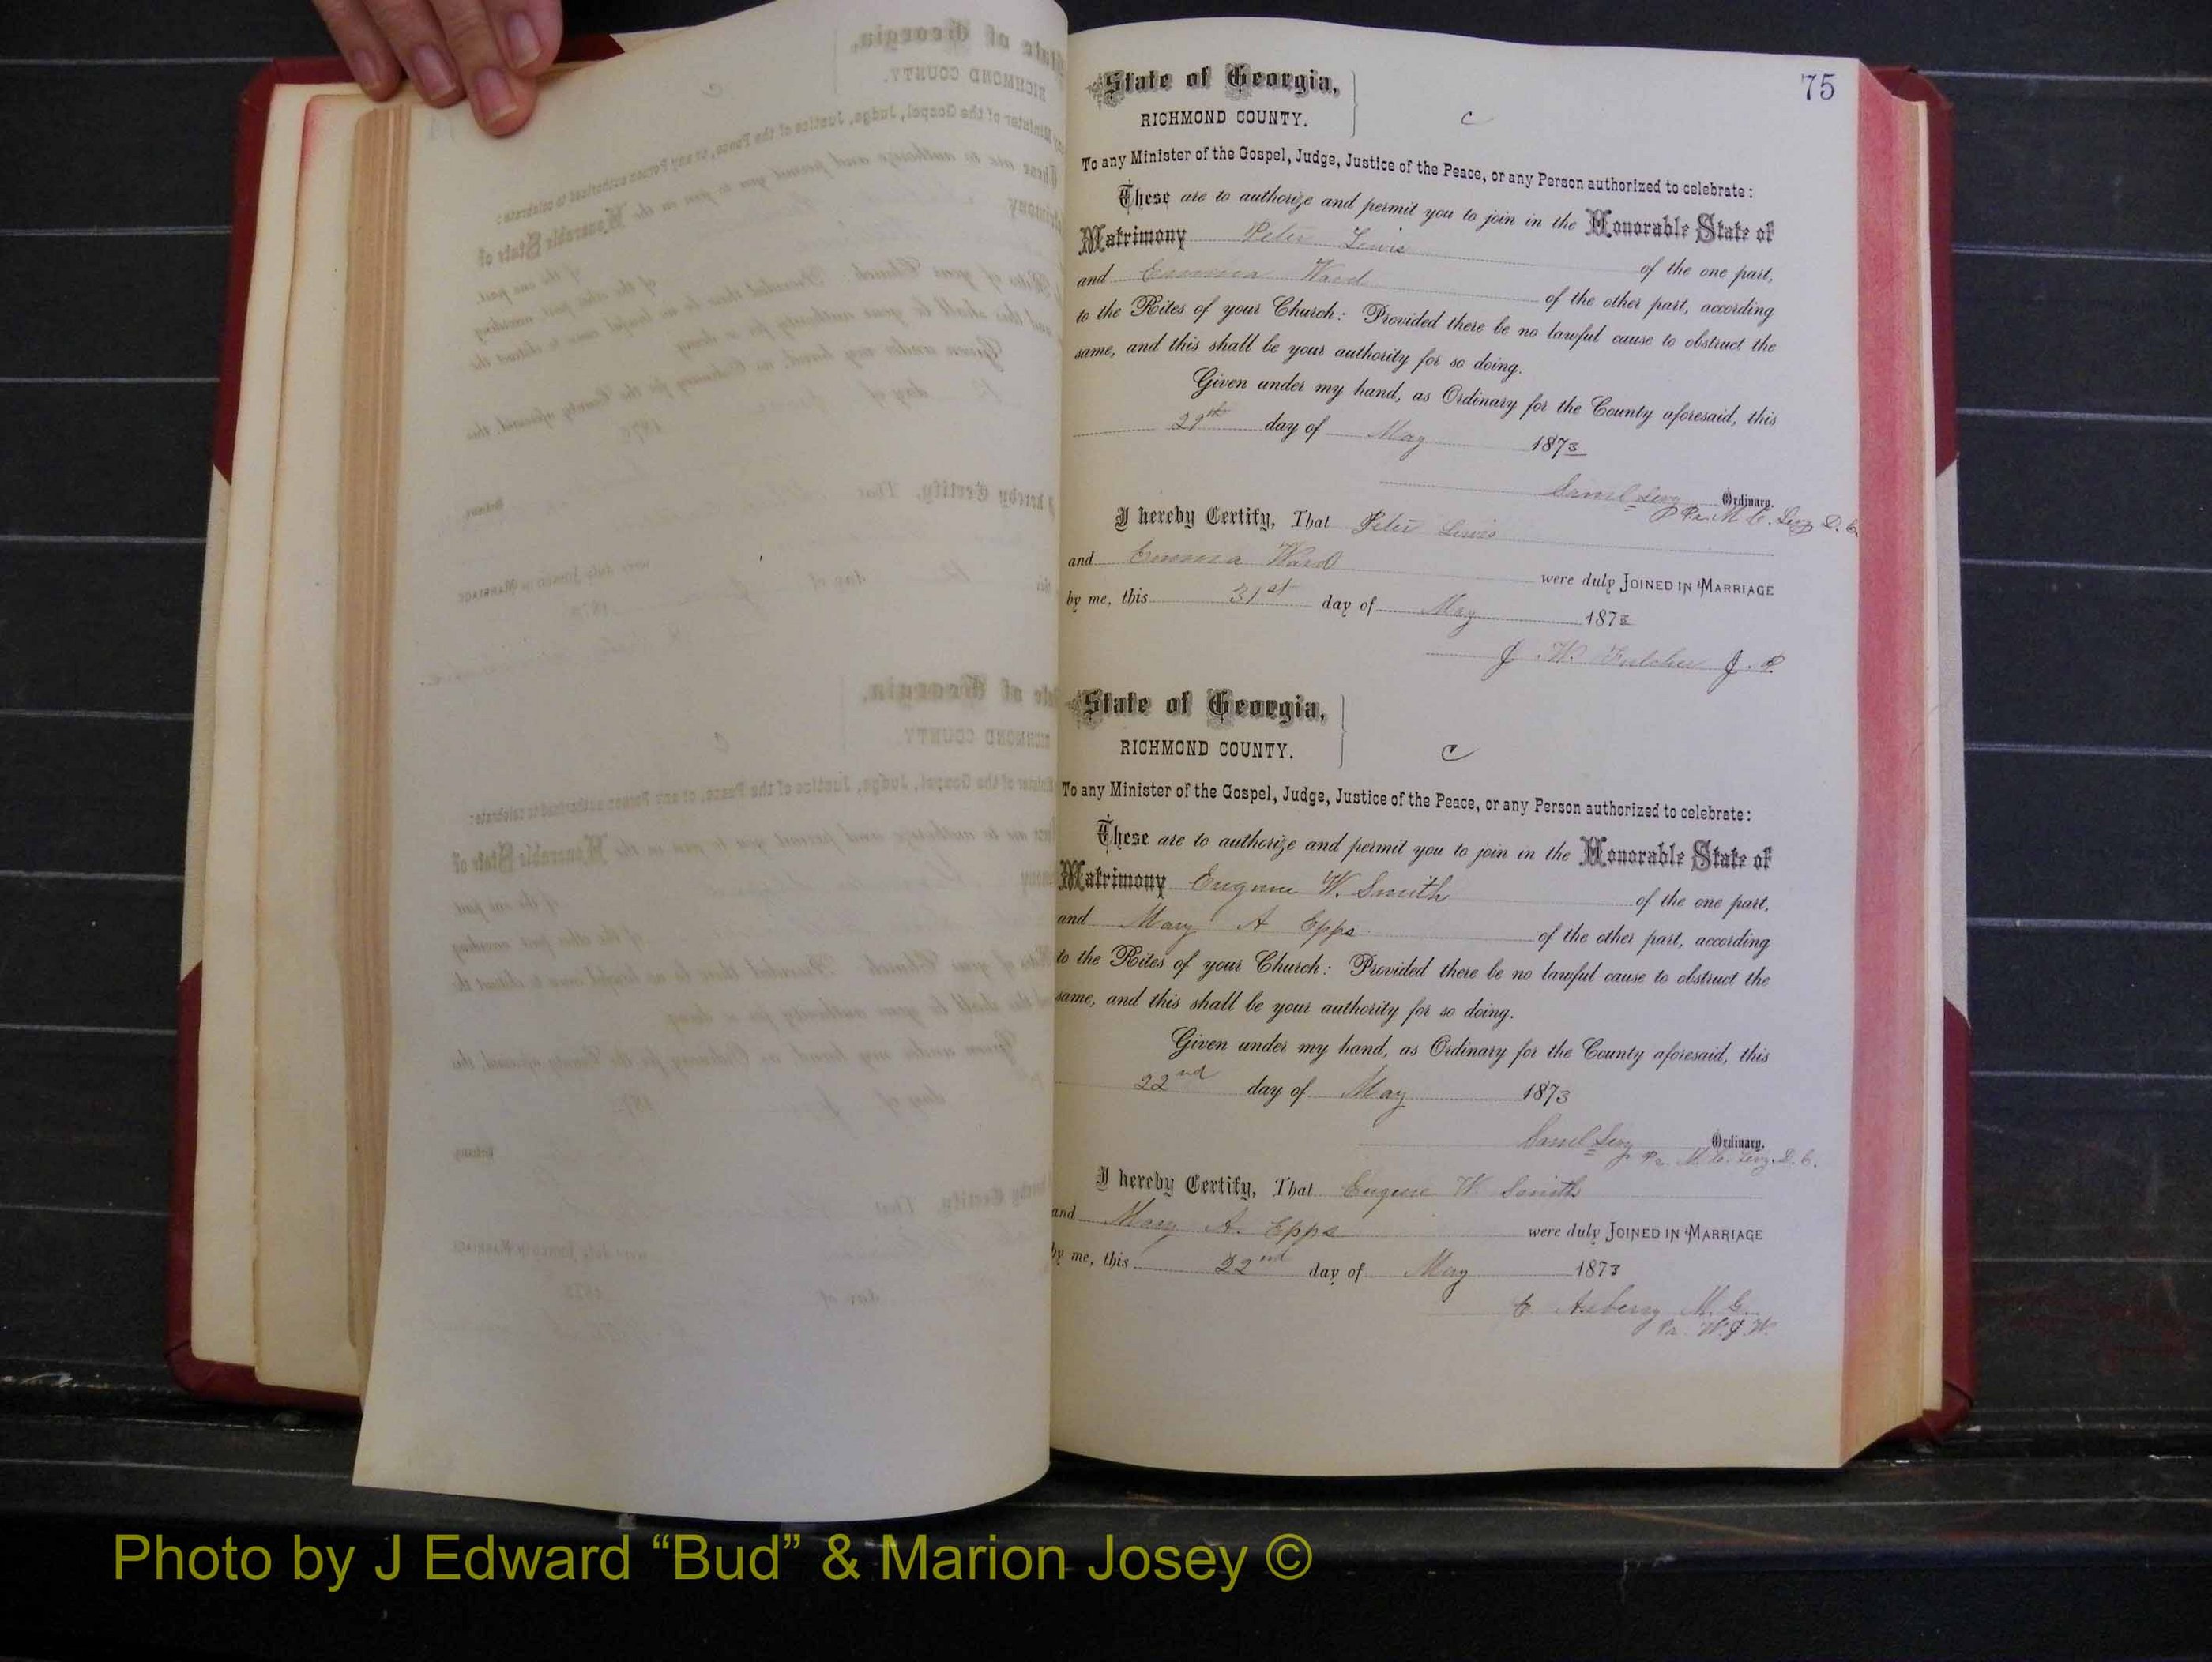 75
State of Georgia,
RICHMOND COUNTY.
C
To any Minister of the Gospel, Judge, Justice of the Peace, or any Person authorized to celebrate:
These are to authorize and permit you to join in the Honorable State of
Matrimony Peter Lewis of the one part,
and Emma Ward of the other part, according
to the Rites of your Church: Provided there be no lawful cause to obstruct the
same, and this shall be your authority for so doing.
Given under my hand, as Ordinary for the County aforesaid, this
29th day of May 1873
Saml Levy Ordinary.
Pr. M. C. Levy D. C.
I hereby Certify, That Peter Lewis
and Emma Ward were duly JOINED IN MARRIAGE
by me, this 31st day of May 1873
J. W. Fulcher J. P.
State of Georgia,
RICHMOND COUNTY.
C
To any Minister of the Gospel, Judge, Justice of the Peace, or any Person authorized to celebrate:
These are to authorize and permit you to join in the Honorable State of
Matrimony Eugene W. Smith of the one part,
and Mary A Epps of the other part, according
to the Rites of your Church: Provided there be no lawful cause to obstruct the
same, and this shall be your authority for so doing.
Given under my hand, as Ordinary for the County aforesaid, this
22nd day of May 1873
Saml Levy Ordinary.
Pr. M. C. Levy D. C.
I hereby Certify, That Eugene W. Smith
and Mary A. Epps were duly JOINED IN MARRIAGE
by me, this 22nd day of May 1873
C Asberry M. G.
Pr. W. J. W.
Photo by J Edward “Bud” & Marion Josey ©